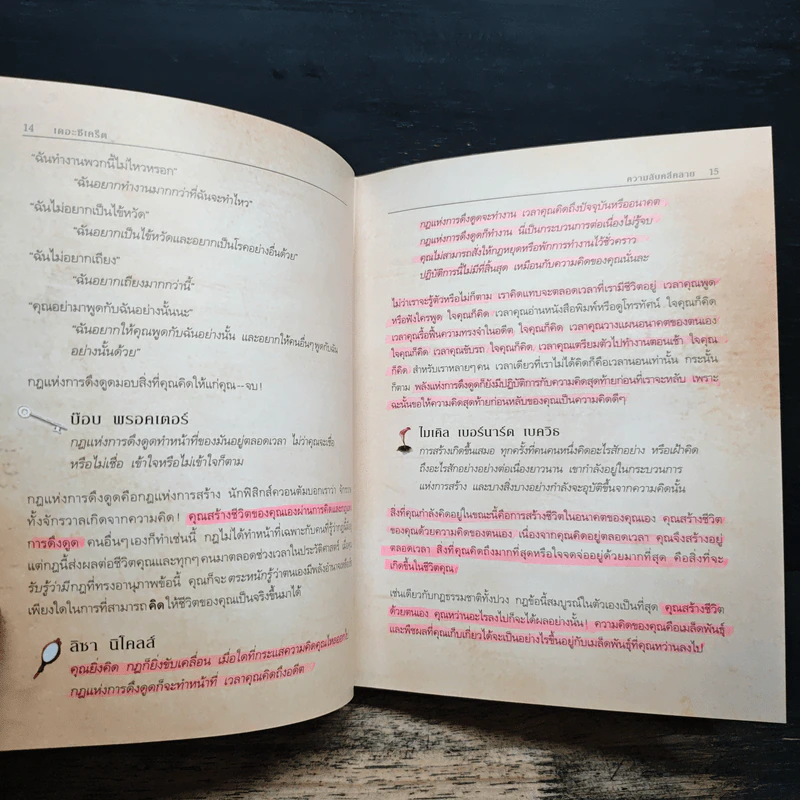 14 เดอะซีเคร็ต
"ฉันทำงานพวกนี้ไม่ไหวหรอก"
"ฉันอยากทำงานมากกว่าที่ฉันจะทำไหว"
"ฉันไม่อยากเป็นไข้หวัด"
"ฉันอยากเป็นไข้หวัดและอยากเป็นโรคอย่างอื่นด้วย"
"ฉันไม่อยากเถียง"
"ฉันอยากเถียงมากกว่านี้"
"คุณอย่ามาพูดกับฉันอย่างนั้นนะ"
"ฉันอยากให้คุณพูดกับฉันอย่างนั้น และอยากให้คนอื่นๆพูดกับฉัน
อย่างนั้นด้วย"
กฎแห่งการดึงดูดมอบสิ่งที่คุณคิดให้แก่คุณ--จบ!
บ๊อบ พรอคเตอร์
กฎแห่งการดึงดูดทำหน้าที่ของมันอยู่ตลอดเวลา ไม่ว่าคุณจะเชื่อ
หรือไม่เชื่อ เข้าใจหรือไม่เข้าใจก็ตาม
กฎแห่งการดึงดูดคือกฎแห่งการสร้าง นักฟิสิกส์ควอนตัมบอกเราว่า
ทั้งจักรวาลเกิดจากความคิด! คุณสร้างชีวิตของคุณเองผ่านการคิดและกฎแห่ง
การดึงดูด คนอื่นๆเองก็ทำเช่นนี้ กฎไม่ได้ทำหน้าที่เฉพาะกับคนที่รู้ว่ากฎนี้
แต่กฎนี้ส่งผลต่อชีวิตคุณและทุกๆคนมาตลอดช่วงเวลาในประวัติศาสตร์ เมื่อคุณ
รับรู้ว่ามีกฎที่ทรงอานุภาพข้อนี้ คุณก็จะตระหนักรู้ว่าตนเองมีพลังอำนาจ
เพียงใดในการที่สามารถคิดให้ชีวิตของคุณเป็นจริงขึ้นมาได้
ลิซา นิโคลส์
คุณยิ่งคิด กฎก็ยิ่งขับเคลื่อน เมื่อใดที่กระแสความคิดคุณไหล
กฎแห่งการดึงดูดก็จะทำหน้าที่ เวลาคุณคิดถึงอดีต
ความลับคลี่คลาย 15
กฎแห่งการดึงดูดจะทำงาน เวลาคุณคิดถึงปัจจุบันหรืออนาคต
กฎแห่งการดึงดูดก็ทำงาน นี่เป็นกระบวนการต่อเนื่องไม่รู้จบ
คุณไม่สามารถสั่งให้กฎหยุดหรือพักการทำงานไว้ชั่วคราว
ปฏิบัติการนี้ไม่มีที่สิ้นสุด เหมือนกับความคิดของคุณนั่นละ
ไม่ว่าเราจะรู้ตัวหรือไม่ก็ตาม เราคิดแทบจะตลอดเวลาที่เรามีชีวิตอยู่ เวลาคุณพูด
หรือฟังใครพูด ใจคุณก็คิด เวลาคุณอ่านหนังสือพิมพ์หรือดูโทรทัศน์ ใจคุณก็คิด
เวลาคุณรื้อฟื้นความทรงจำในอดีต ใจคุณก็คิด เวลาคุณวางแผนอนาคตของตนเอง
ใจคุณก็คิด เวลาคุณขับรถ ใจคุณก็คิด เวลาคุณเตรียมตัวไปทำงานตอนเช้า ใจคุณ
ก็คิด สำหรับเราหลายๆคน เวลาเดียวที่เราไม่ได้คิดก็คือเวลานอนเท่านั้น กระนั้น
ก็ตาม พลังแห่งการดึงดูดก็ยังมีปฏิบัติการกับความคิดสุดท้ายก่อนที่เราจะหลับ เพราะ
ฉะนั้นขอให้ความคิดสุดท้ายก่อนหลับของคุณเป็นความคิดดีๆ
ไมเคิล เบอร์นาร์ด เบควิธ
การสร้างเกิดขึ้นเสมอ ทุกครั้งที่คนคนหนึ่งคิดอะไรสักอย่าง หรือเฝ้าคิด
ถึงอะไรสักอย่างอย่างต่อเนื่องยาวนาน เขากำลังอยู่ในกระบวนการ
แห่งการสร้าง และบางสิ่งบางอย่างกำลังจะอุบัติขึ้นจากความคิดนั้น
สิ่งที่คุณกำลังคิดอยู่ในขณะนี้คือการสร้างชีวิตในอนาคตของคุณเอง คุณสร้างชีวิต
ของคุณด้วยความคิดของตนเอง เนื่องจากคุณคิดอยู่ตลอดเวลา คุณจึงสร้างอยู่
ตลอดเวลา สิ่งที่คุณคิดถึงมากที่สุดหรือใจจดจ่ออยู่ด้วยมากที่สุด คือสิ่งที่จะ
เกิดขึ้นในชีวิตคุณ
เช่นเดียวกับกฎธรรมชาติทั้งปวง กฎข้อนี้สมบูรณ์ในตัวเองเป็นที่สุด คุณสร้างชีวิต
ด้วยตนเอง คุณหว่านอะไรลงไปก็จะได้ผลอย่างนั้น! ความคิดของคุณคือเมล็ดพันธุ์
และพืชผลที่คุณเก็บเกี่ยวได้จะเป็นอย่างไรขึ้นอยู่กับเมล็ดพันธุ์ที่คุณหว่านลงไป!